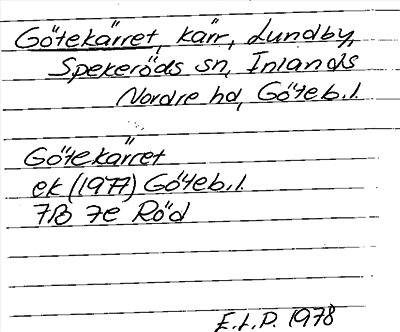 Götekärret, kärr, Lundby,
Spekeröds sn, Inlands
Nordre hd, Göteb.l.
Götekärret
ek (1977) Göteb.l.
7B 7e Röd
E.L.P. 1978